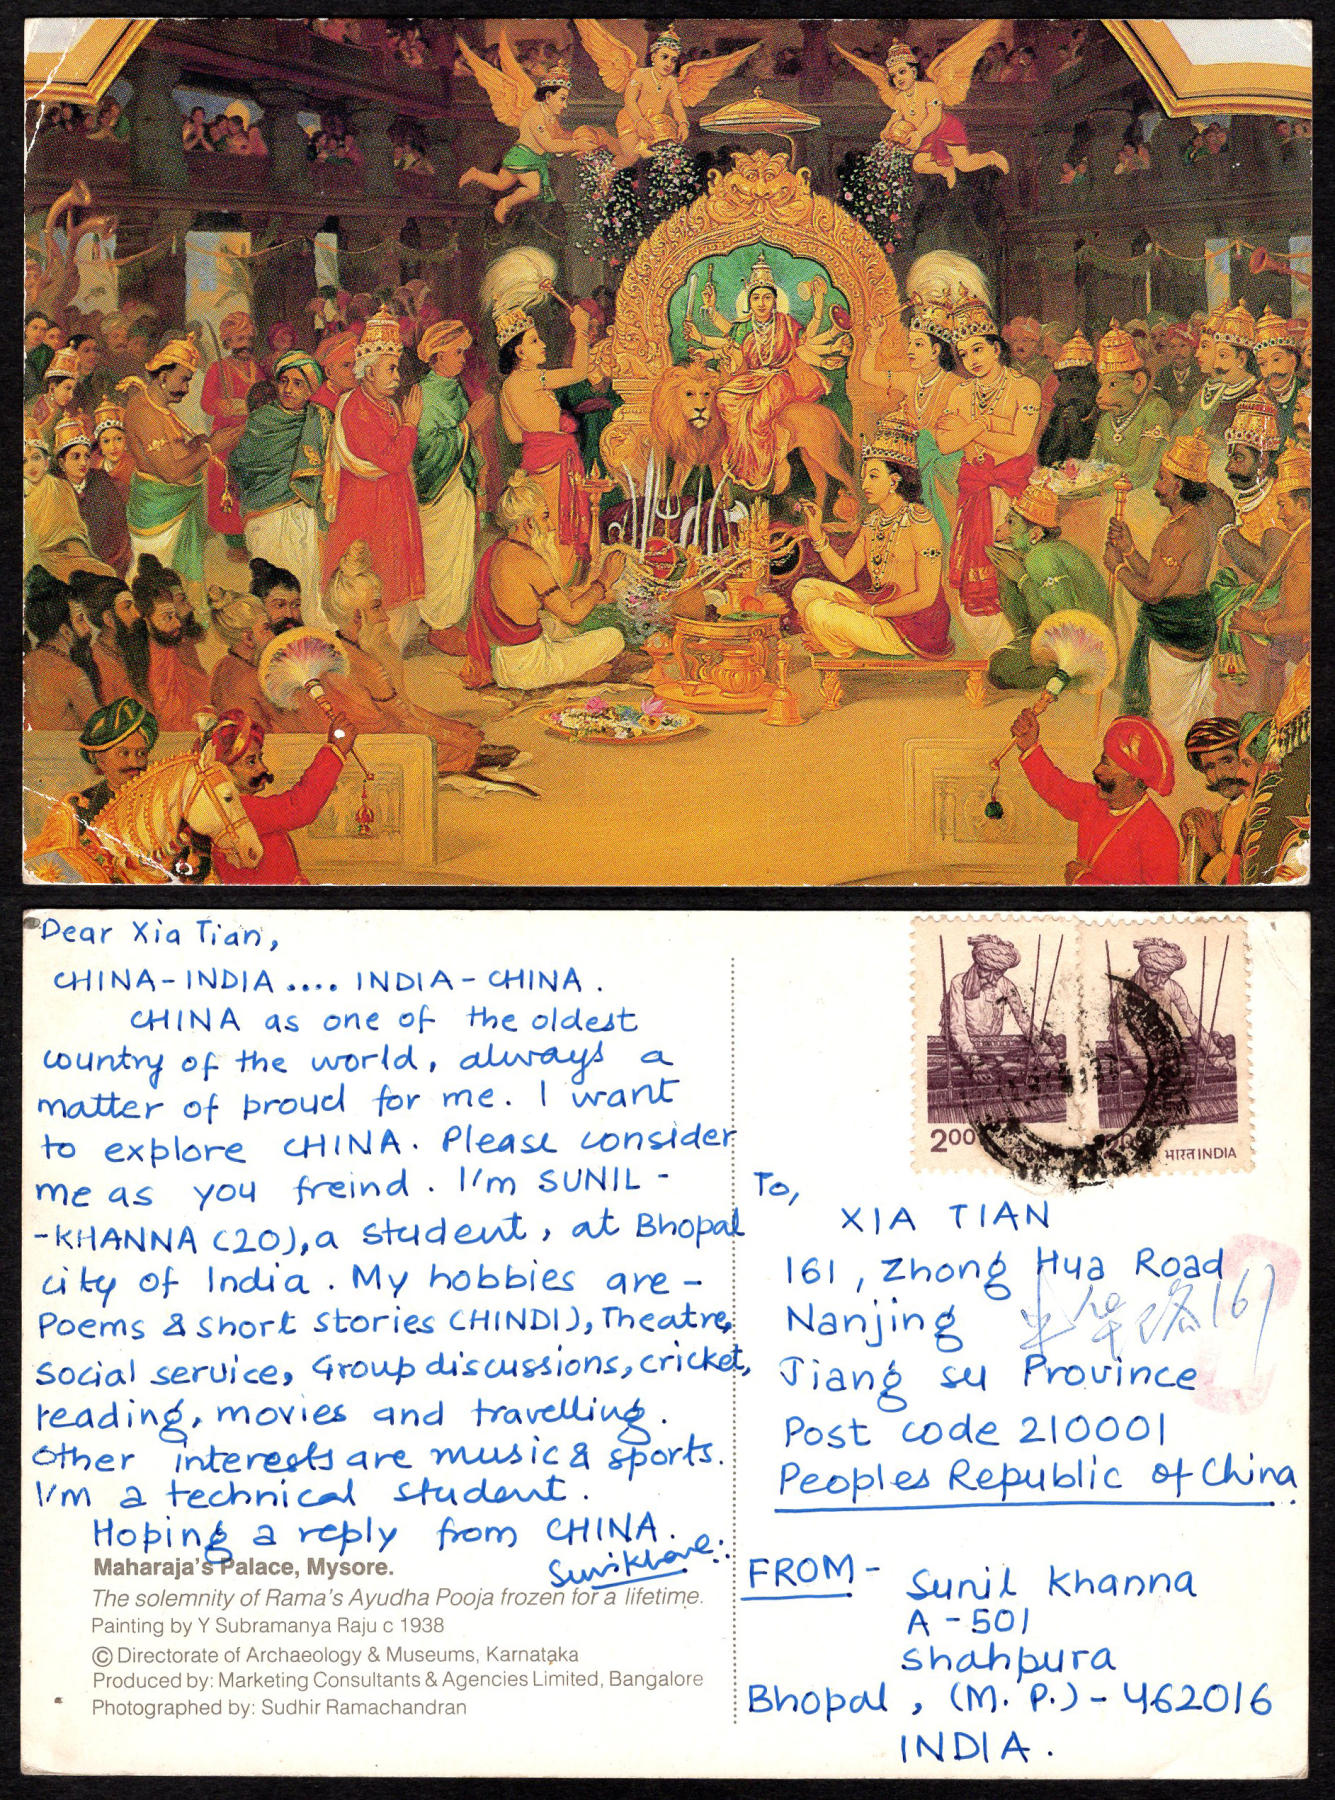 Dear Xia Tian,
CHINA-INDIA .... INDIA-CHINA.
CHINA as one of the oldest
country of the world, always a
matter of proud for me. I want
to explore CHINA. Please consider
me as you freind. I'm SUNIL -
-KHANNA (20), a student, at Bhopal
city of India. My hobbies are -
Poems & short stories (HINDI), Theatre,
Social service, Group discussions, cricket,
reading, movies and travelling.
Other interests are music & sports.
I'm a technical student.
Hoping a reply from CHINA.
Maharaja's Palace, Mysore.
The solemnity of Rama's Ayudha Pooja frozen for a lifetime.
Painting by Y Subramanya Raju c 1938
© Directorate of Archaeology & Museums, Karnataka
Produced by: Marketing Consultants & Agencies Limited, Bangalore
Photographed by: Sudhir Ramachandran
200
भारत INDIA
To,
XIA TIAN
161, Zhong Hua Road
Nanjing
华路161
Jiang su Province
Post code 210001
Peoples Republic of China
FROM -
Sunil Khanna
A-501
Shahpura
Bhopal, (M.P.) - 462016
INDIA.